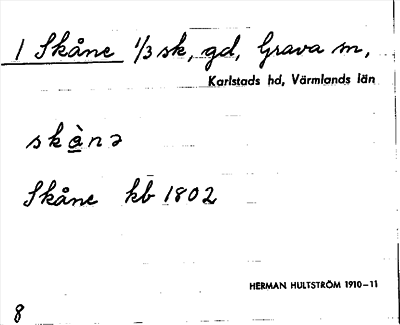 1 Skåne 1/3 sk, gd, Grava sn,
Karlstads hd, Värmlands län
skɑ̀nə
Skåne kb 1802
HERMAN HULTSTRÖM 1910–11
8